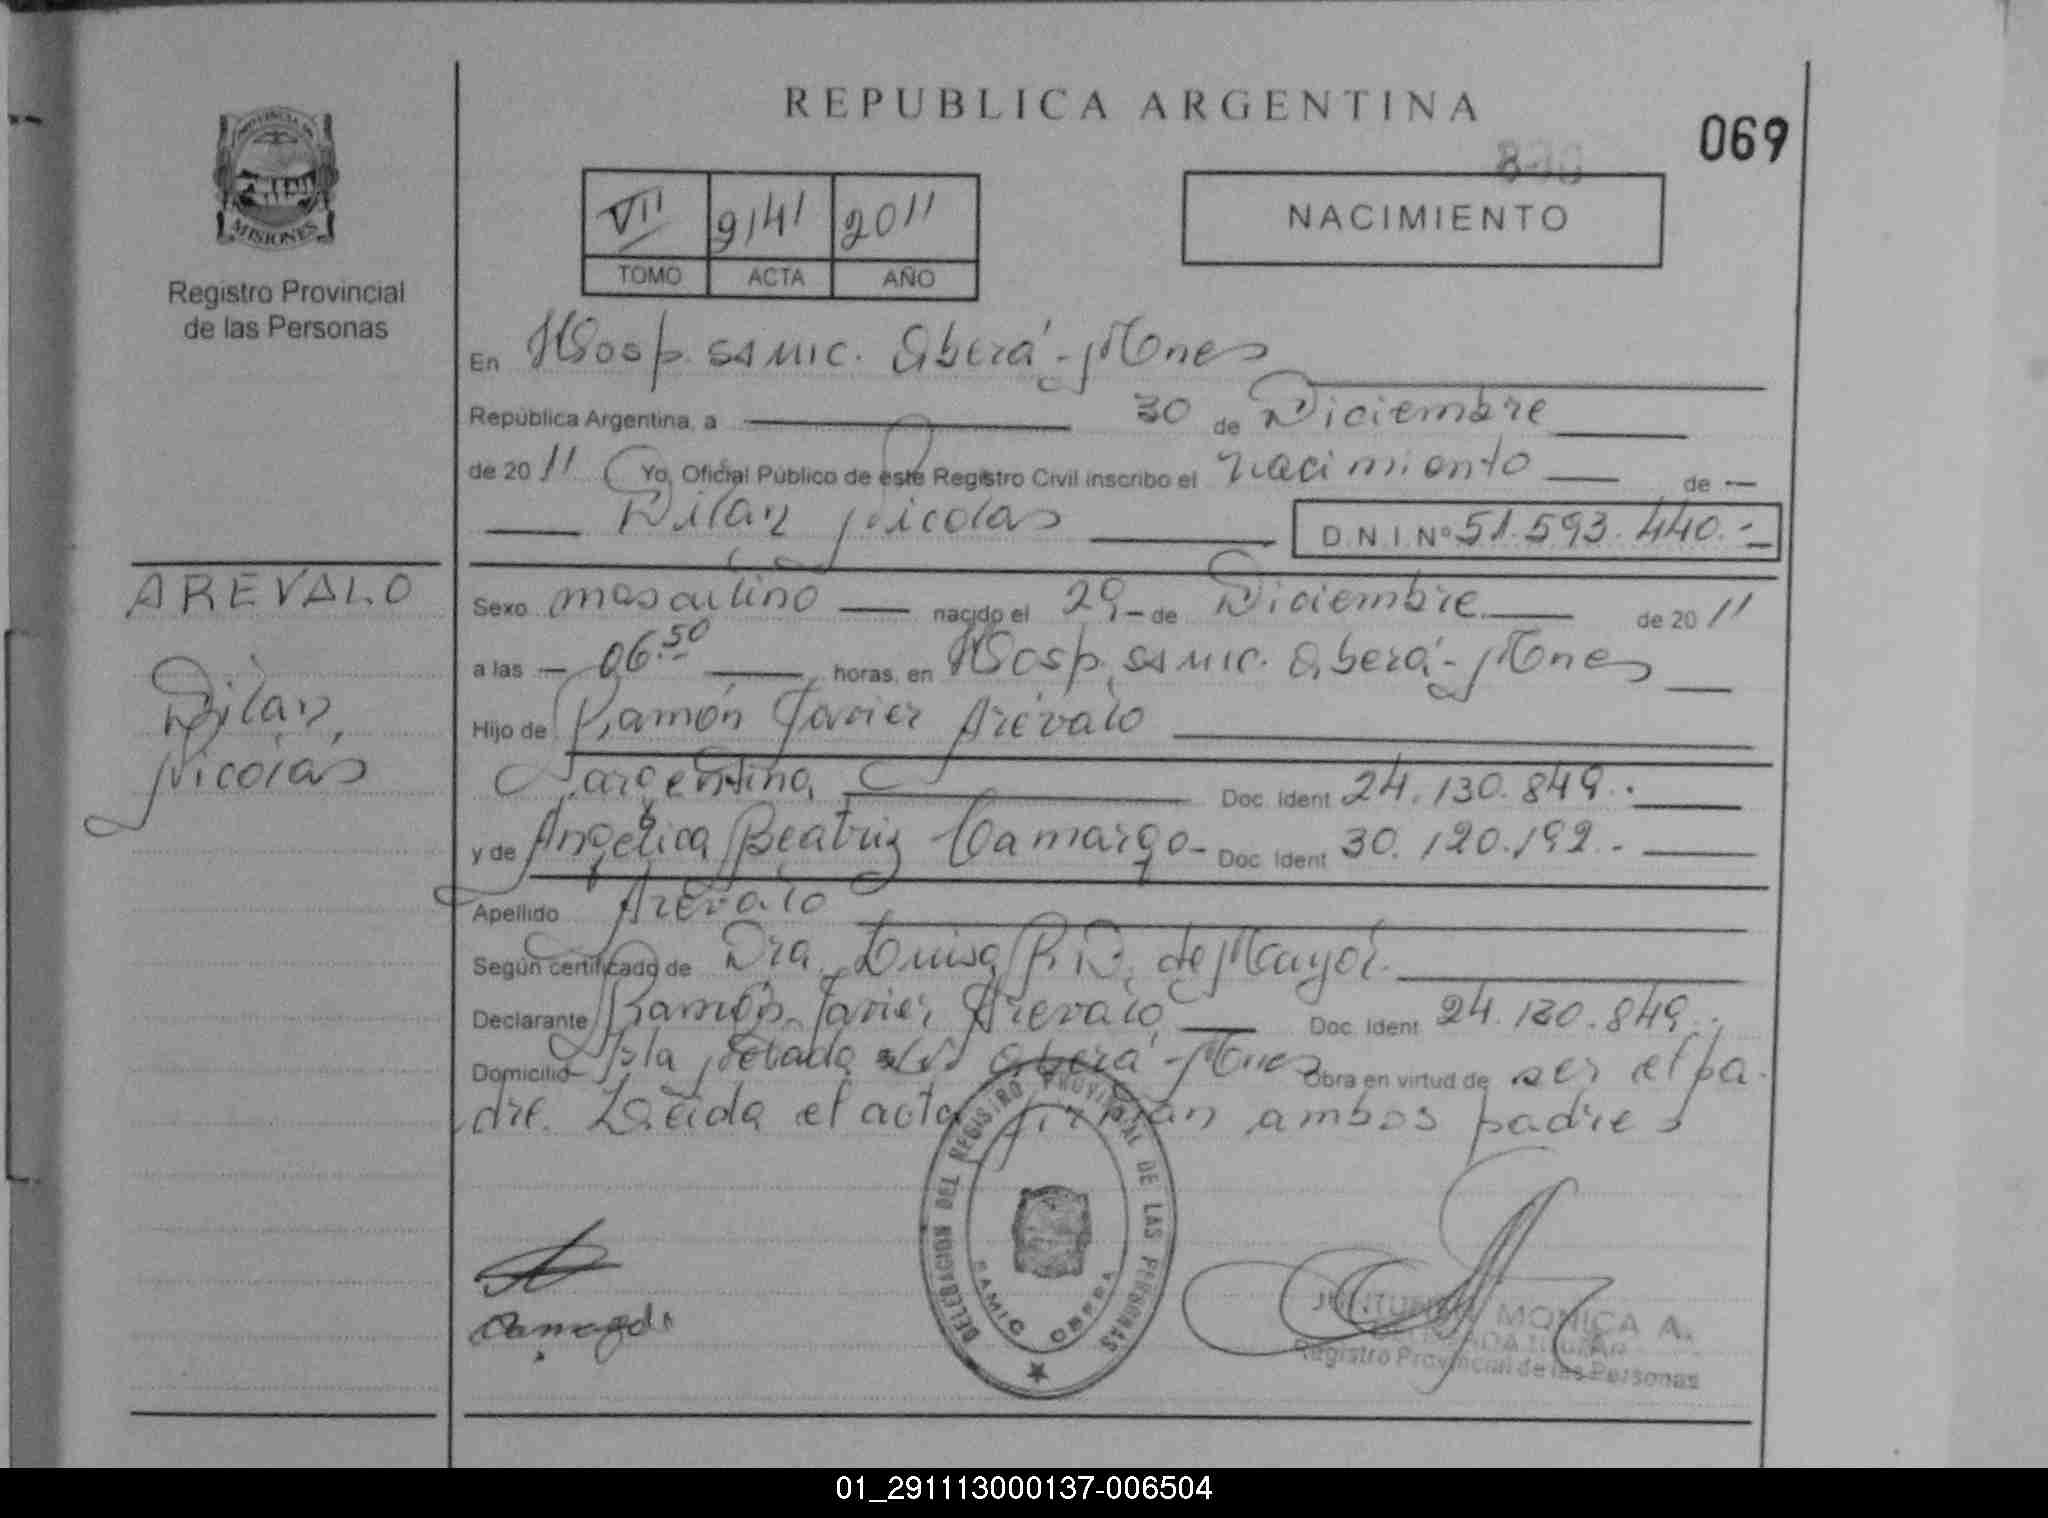 REPUBLICA ARGENTINA
069
PROVINCIA DE
MISIONES
Registro Provincial
de las Personas
VII 9141 2011
TOMO ACTA AÑO
NACIMIENTO
En Hosp. SAMIC. Oberá - Mnes
República Argentina, a 30 de Diciembre
de 20 11 Yo, Oficial Público de este Registro Civil inscribo el nacimiento de
Dilan Nicolás D.N.I. Nº 51.593.440.-
AREVALO
Dilan
Nicolás
Sexo masculino nacido el 29 - de Diciembre de 20 11
a las 06.50 horas, en Hosp. SAMIC. Oberá - Mnes
Hijo de Ramón Javier Arévalo
argentina Doc. Ident 24.130.849.-
y de Angélica Beatriz Camargo - Doc. Ident 30.120.192.-
Apellido Arévalo
Según certificado de Dra. Luisa R. D. de Mayol.
Declarante Ramón Javier Arévalo Doc. Ident 24.130.849.-
Domicilio Picada Oberá - Mnes Obra en virtud de ser el pa-
dre. Leída el acta firman ambos padres
DELEGACION DEL REGISTRO PROVINCIAL DE LAS PERSONAS
SAMIC OBERA
MONICA A.
Registro Provincial de las Personas
01_291113000137-006504